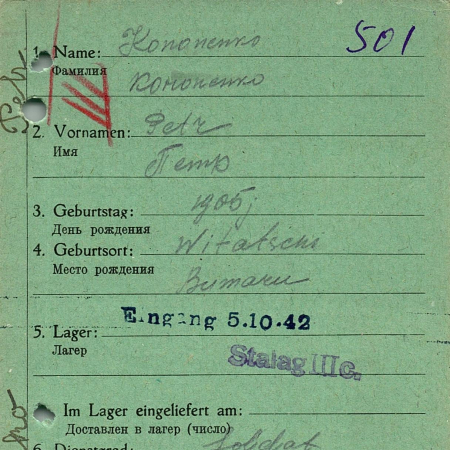 501
1. Name: Kononenko
Фамилия Кononenko
2. Vornamen: Petr
Имя Петр
3. Geburtstag: 1905
День рождения
4. Geburtsort: Witatschi
Место рождения Витачи
Eingang 5.10.42
5. Lager:
Лагерь
Stalag IIIc.
Im Lager eingeliefert am:
Доставлен в лагерь (число)
6. Dienstgrad: Soldat